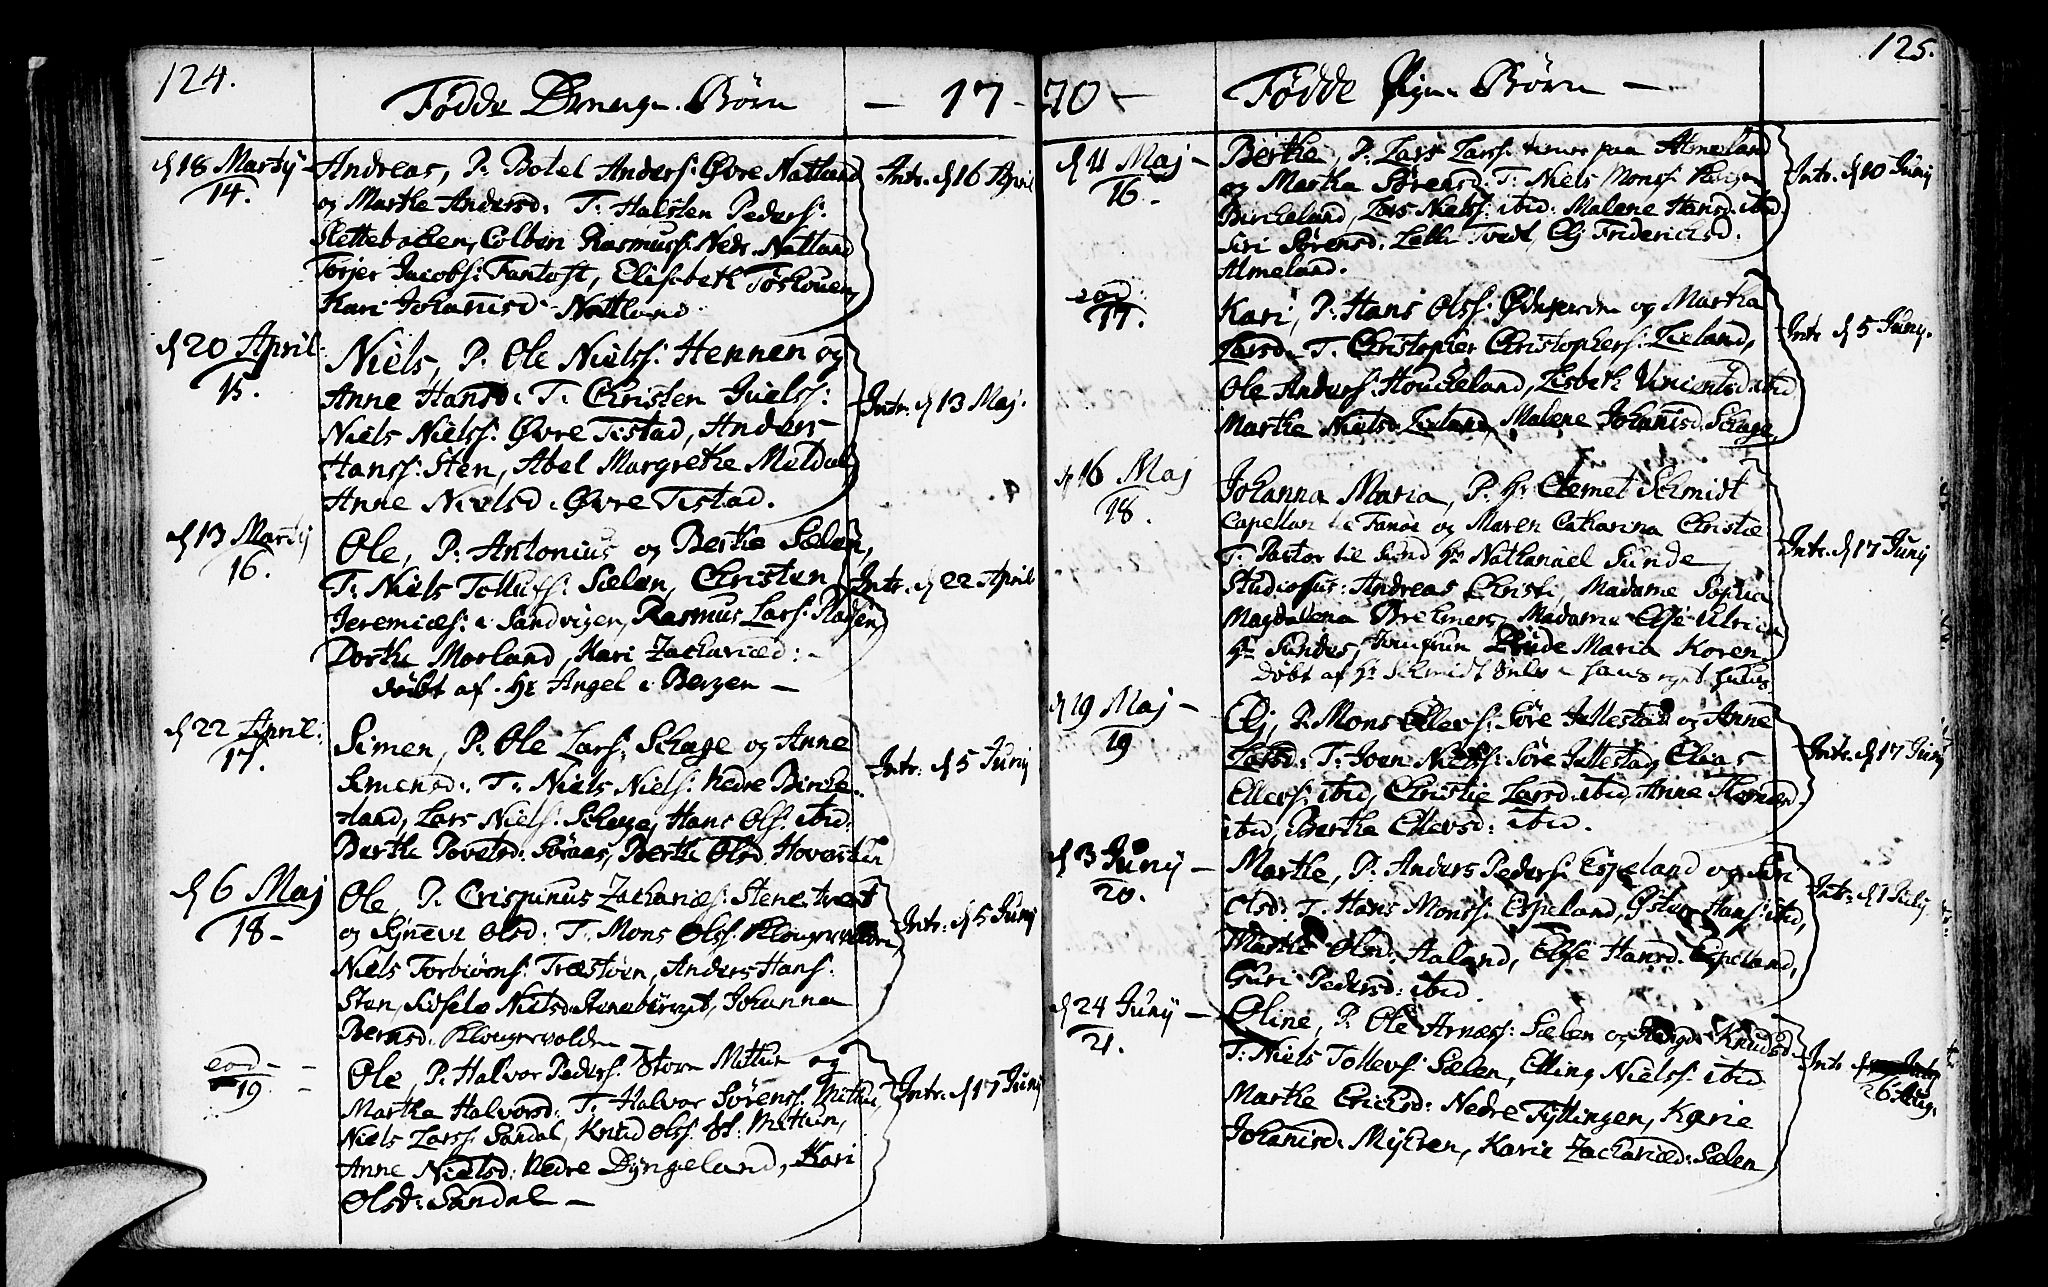 124.
Fødde Drenge-Børn — 17-
d 18 Martÿ
14.
Andreas, P. Botel Anders: Øvre Natland
og Marthe Andersd: T: Halsten Peders:
Slettebacken, Colben Rasmuss: Nedr. Natland
Torjer Jacobs: Fantoft, Elisabeth Tøskouen,
Kari Johanisd. Natland.
Intr. d 16 April
d 20 April
15.
Niels, P. Ole Nielss: Hennen og
Anne Hansd: T. Christen Juelss:
Niels Nielss: Øvre Tistad, Anders
Hanss: Sten, Abel Margrethe Meldal,
Anne Nielsd: Øvre Tistad.
Intr. d 13 Maj.
d 13 Martÿ
16.
Ole, P. Antonius og Berthe Sælen,
T. Niels Tollefs: Sælen, Christen
Jeremiæs: i Sandvigen, Rasmus Lars:
Dorthe Morland, Kari Zachariæd: -
døbt af Hr Angel i Bergen —
Intr. d 22 April
d 22 April:
17.
Simen, P. Ole Larss: Schage og Anne
Simensd: T: Niels Niels: Nedre Bircke-
land, Lars Niels: Schage, Hans Ols: ibid:
Berthe Povelsd: Søraas, Berthe Olsd.
Intr: d 5 Junÿ
d 6 Maj
18 -
Ole, P. Crispinus Zachariæs: Stene
og Sÿneve Olsd: T. Mons Olss:
Niels Torbiørns: Træstøen, Anders Hans:
Sten, Sidsele Nielsd. Steneberget, Johanna
Bernsd: Klougervolden
Intr: d 5 Junÿ
eod -
19.
Ole, P. Halvor Peders: Store Mittun og
Marthe Halvorsd: T. Halvor Sørens: Mithun,
Niels Larss: Sandal, Knud Olss: St: Mittun,
Anne Nielsd: Nedre Dÿngeland, Kari
Olsd: Sandal —
Intr. d 17 Junÿ
125.
70 — Fødde Pige-Børn —
d 11 Maj -
16.
Berthe, P. Lars Larss: tiener paa Almeland
og Marthe Sørensd: T: Niels Monss:
Birckeland, Lars Nielss: ibid: Malene Hansd. ibid.
Siri Sørensd: Lelle Tvedt, Elj Friderichsd:
Almeland.
Intr. d 10 Junÿ
eod:
17.
Kari, P: Hans Olss: og Martha
Larsd. T. Christopher Christophers: Lieland,
Ole Anders: Houckeland, Lisbeth Vincientsd. ibid
Marthe Nielsd. Lieland, Malene Johanisd. Schage,
Intr. d 5 Junÿ.
d 16 Maj
18.
Johanna Maria, P. Hr Clemet Schmidt
Capellan til Fanøe og Maren Catharina Christie
T. Pastor til Sund Hr Nathanael Sunde,
Studiosus: Andreas Christi, Madame Sophia
Magdalena Brelmers, Madame Else Ulrica
Hr Sundes, Jomfrue Maria Koren
Døbt af Hr Schmidt i hans eget huus
Intr. d 17 Junÿ
d 19 Maj -
19
Elj, P. Mons Ellevs: Søre Jillestad og Anne
Larsd: T: Joen Nielss: Søre Jillestad, Elias
Ellevs: ibid, Christie Larsd. ibid, Anne
ibid, Berthe Ellevsd: ibid.
Intr. d 17 Junÿ
d 3 Junÿ -
20.
Marthe, P. Anders Peders: Espeland og Siri
Olsd: T. Hans Monss: Espeland, Hans: ibid,
Marthe Olsd: Haland, Else Hansd. Espeland,
Guri Pedersd: ibid.
Intr. d 1 Julÿ
d 24 Junÿ -
21.
Oline, P. Ole Arnæss: Sælen og Knudsd.
T: Niels Tollevs: Sælen, Elling Niels: ibid
Marthe Erichsd: Nedre Tÿttingen, Karie
Johanisd: Mÿren, Karie Zachariæd: Sælen
Intr d
26 Aug.